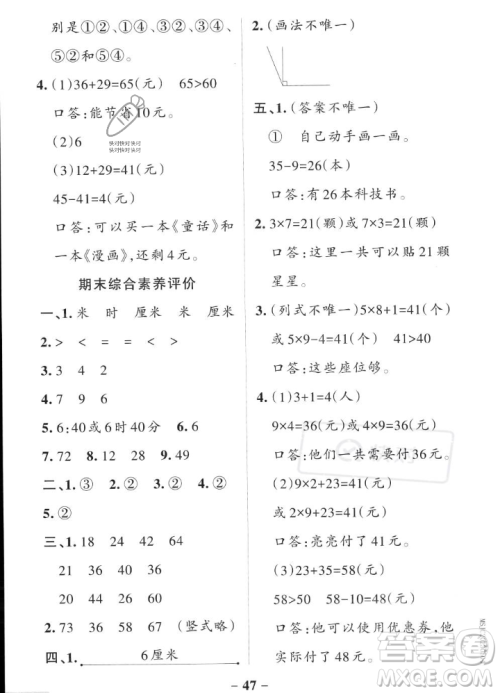 别是①②、①②、②③④、
⑤⑥②和②⑤④。
4.(1)36+29=65(元) 65>60
口答:能节省10元。
(2)6
快对快对快对
快对快对快对
(3)12+29=41(元)
45-41=4(元)
口答:可以买一本《童话》和
一本《漫画》,还剩4元。
期末综合素养评价
一、1.米 时 厘米 米 厘米
2.> < = < >
3.2 4
4.7 9 6
5.6:40或6时40分 8 8
6.9 4
7.72 12 28 8.49 9.②
二、1.③ 2.② 3.① 4.②
5.②
三、1.18 24 42 64
21 20 36 21
36 40 48 67
2.73 34 58 67 (竖式略)
四、1. 6厘米
2.(画法不唯一)
五、1.(答案不唯一)
① 自己动手画一画。
35-9=26(本)
口答:有26本科技书。
2.3×7=21(颗)或7×3=21(颗)
口答:这里一共可以贴21颗
星星。
3.(列式不唯一)5×8+1=41(个)
或5×9-4=41(个) 41>40
口答:这些座位够。
4.(1)3+1=4(人)
9×4=36(元)或4×9=36(元)
口答:他们一共需要付36元。
(2)9×2+23=41(元)
或2×9+23=41(元)
口答:亮亮付了41元。
(3)23+35=58(元)
58>50 58-10=48(元)
口答:他可以使用优惠券,他
实际付了48元。
– 47 –